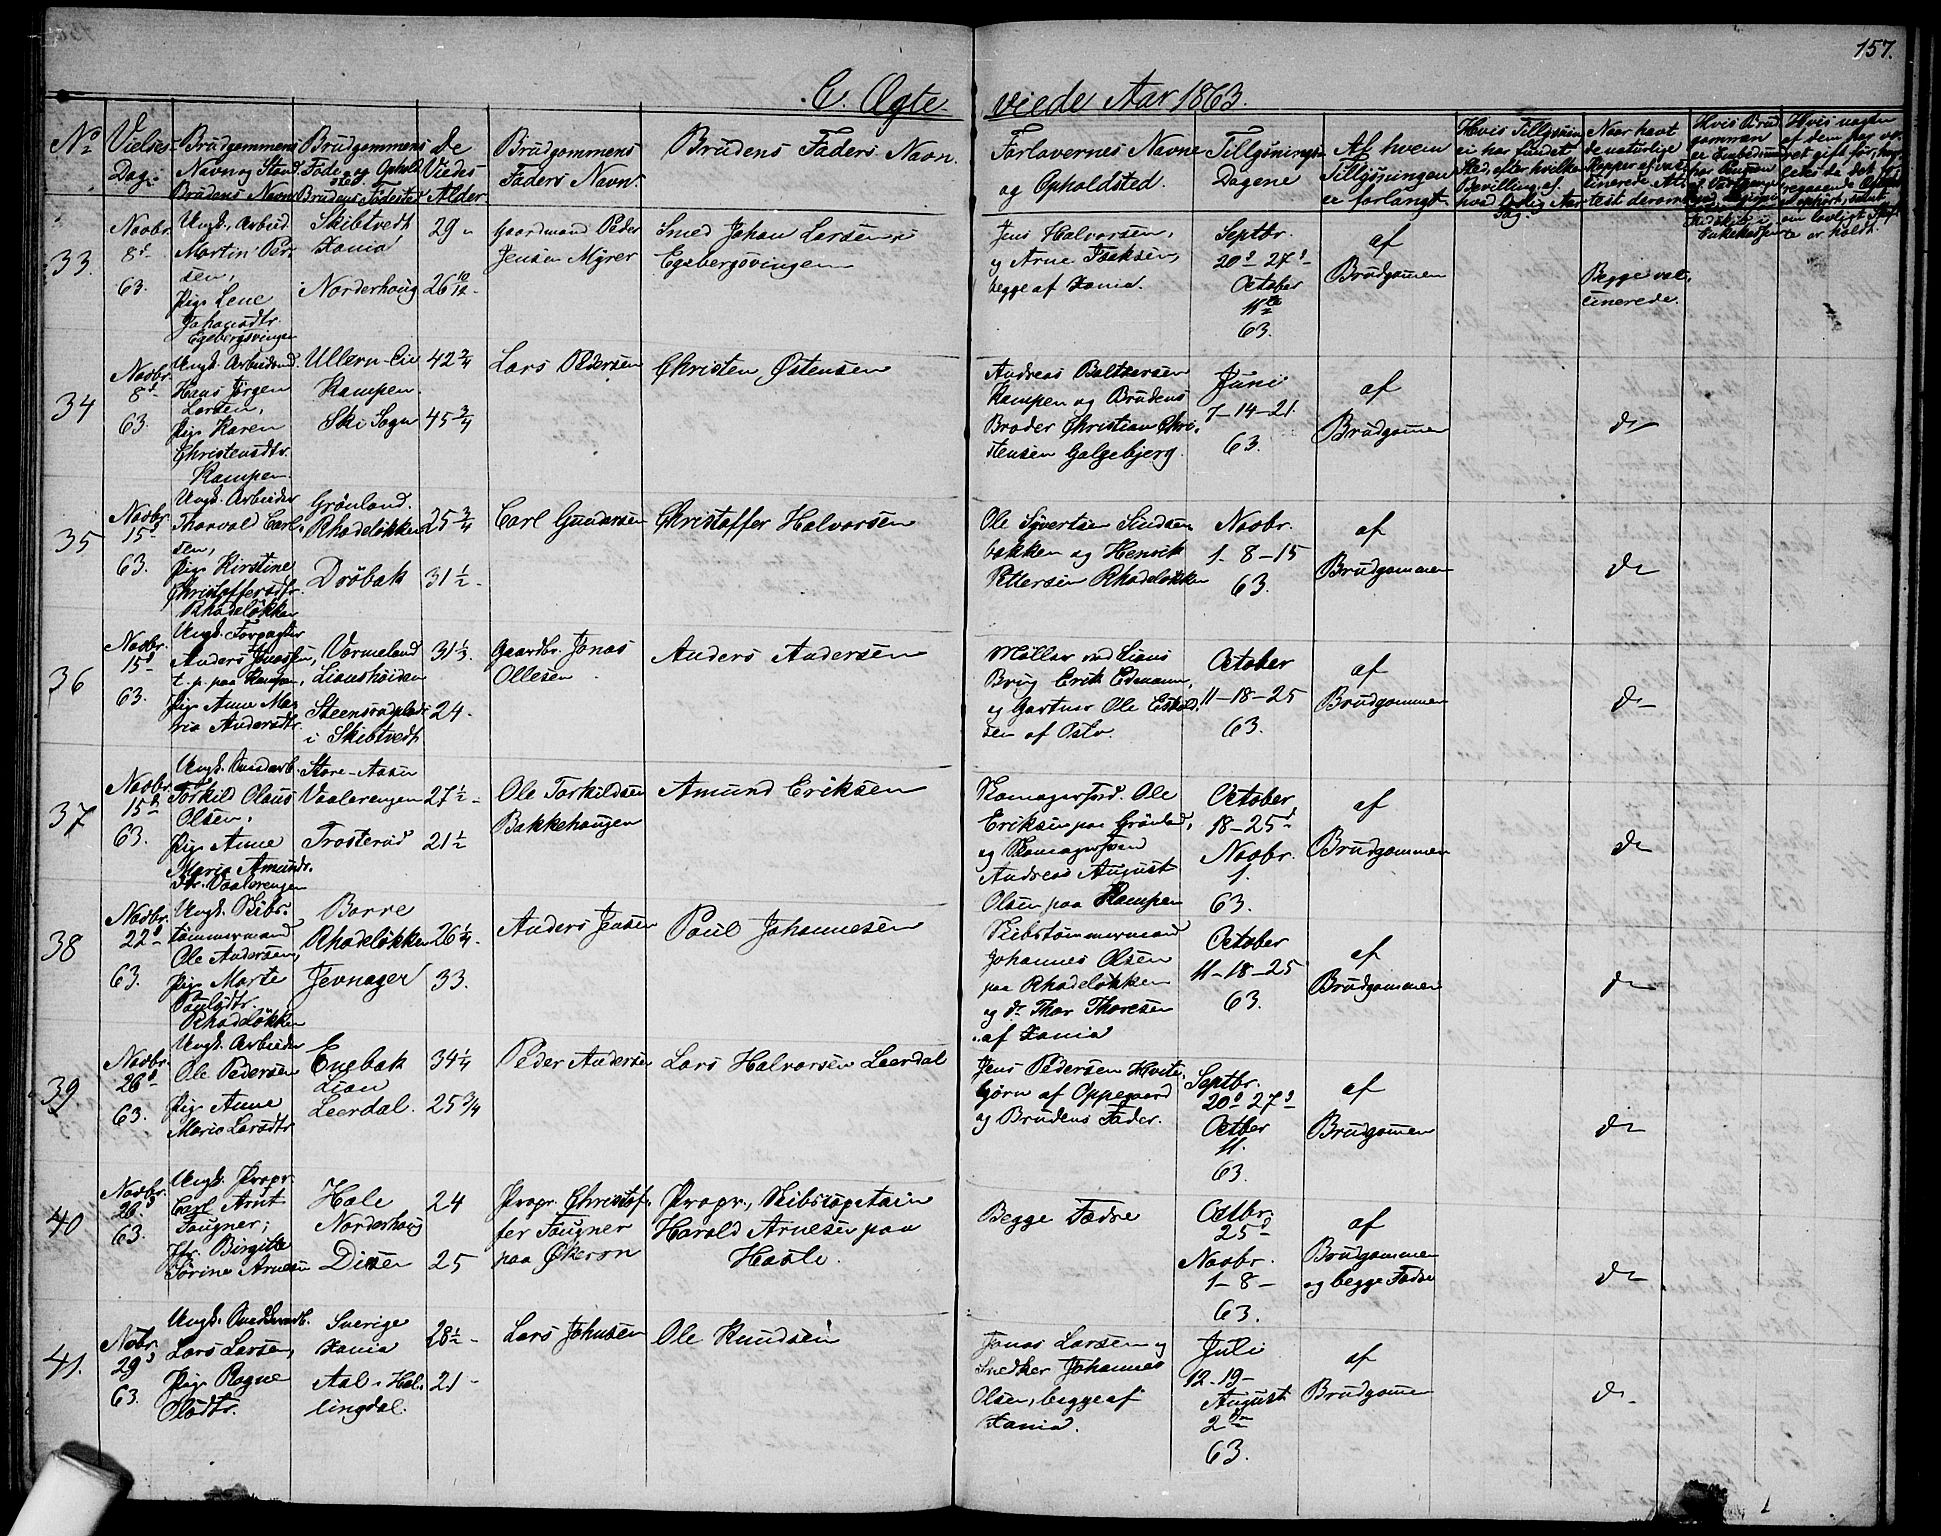 157.
C. Ægte
viede Aar 1863.
No
Vielses
Dag.
Brudgommens
Navn og Stand
Brudens Navn
Brudgommens
Føde og Ophold
sted
Brudens Fødested
De
Viedes
Alder
Brudgommens
Faders Navn.
Brudens Faders Navn.
Forlovernes Navne
og Opholdsted.
Tillysnings
Dagene
Af hvem
Tillysningen
er forlangt.
Hvis Tillysning
ei har fundet
Sted, efter hvilken
Bevilling af
Naar havt
de naturlige
Kopper af vac
cinerede. At
test derom
33.
Novbr.
8d
63.
Ungk. Arbeid.
Martin Per
sen,
Pige Lene
Johansdtr.
Egebergsvingen
Skibtvedt
Xania
Norderhoug
29
26 10/12
Gaardmand Peder
Jensen Myrer
Smed Johan Larsen i
Egebergsvingen
Jens Halvorsen,
og Arne Isaksen,
begge af Xania.
Septbr.
20d 27d
October
11te
63.
af
Brudgommen
Begge vac
cinerede.
34
Novbr.
8d
63.
Ungk. Arbeidsmd.
Hans Jørgen
Larsen,
Pige Karen
Christensdtr.
Kampen
Ullern
Kampen.
Ski Sogn
42 3/4
45 3/4
Lars Pedersen
Christen Østensen
Andreas Baltsersen
Kampen og Brudens
Broder Christian Chri
stensen Galgebjerg.
Juni
7-14-21.
63.
af
Brudgommen
do
35
Novbr.
15d
63.
Ungk. Arbeider
Thorvald Carl
sen,
Pige Kirstine
Christoffersdtr.
Rhodeløkken
Grønland.
Rhodeløkken
Drøbak
25 3/4
31 1/2
Carl Gundersen
Christoffer Halvorsen
Ole Syvertsen Sindsen
bakken og Henrik
Pettersen Rhodeløkken
Novbr.
1-8-15
63.
af
Brudgommen
do
36
Novbr.
15d
63.
Ungk. Forpagter
Anders Jonassen,
t. p. paa Kampen,
Pige Anne Ma
ria Andersdtr.
Vermeland
Steensrudplads
i Skibtvedt
31 1/3.
24.
Gaardbr. Jonas
Ollesen
Anders Andersen
Møller ved Lians
Brug Erik Edmann,
og Gartner Ole Eskild
sen af Oslo.
October
11-18-25
63.
af
Brudgommen
do
37
Novbr.
15d
63.
Torkild Olaus
Olsen,
Pige Anne
Marie Amunds
dtr. Vaalerengen
Store-Aasen
Vaalerengen
Trosterud
27 1/2
21 1/2
Ole Torkildsen
Bakkehaugen
Amund Eriksen
Skomagersvd. Ole
Eriksen paa Grønland,
og Skomagersvend
Andreas August
Olsen paa Kampen
October
18-25d
Novbr.
1.
63.
af
Brudgommen
do
38
Novbr.
22d
63.
Ungk. Skibs
tømmermand
Ole Andersen,
Pige Marte
Poulsdtr.
Rhodeløkken
Borre
Rhodeløkken
Jevnager
26 1/4.
33.
Anders Jensen
Poul Johannesen
Skibstømmermand
Johannes Olsen
paa Rhodeløkken
og do Thor Thoresen
af Xania
October
11-18-25
63.
af
Brudgommen
do
39
Novbr.
26d
63.
Ungk. Arbeider
Ole Pedersen
Pige Anne
Marie Larsdtr.
Enebak
Lian
Leerdal.
34 1/4
25 3/4
Peder Andersen
Lars Halvorsen Leerdal
Jens Pedersen Hvite
bjørn af Oppegaard
og Brudens Fader.
Septbr.
20d 27d
Octber
11.
63.
af
Brudgommen
do
40
Novbr.
26d
63.
Ungk. Propr.
Carl Arnt
Fougner;
Jfr. Birgitte
Sørine Arnesen
Hole
Norderhoug
Disen
24
25
Propr. Christof
fer Fougner
paa Økern
Propr., Skibscapetain
Harald Arnesen paa
Hasle.
Begge Fædre
Octbr.
25d
Novbr.
1-8-
63.
af
Brudgommen
og begge Fædre
do
41.
Novbr.
29d
63.
Lars Larsen,
Pige Ragne
Olsdtr.
Sverige
Xania
Aal i Hal
lingdal.
28 1/2
21
Lars Johnsen
Ole Knudsen
Jonas Larsen og
Snedker Johannes
Olsen, begge af
Xania.
Juli
12-19-
August
2den
63.
af
Brudgommen
do